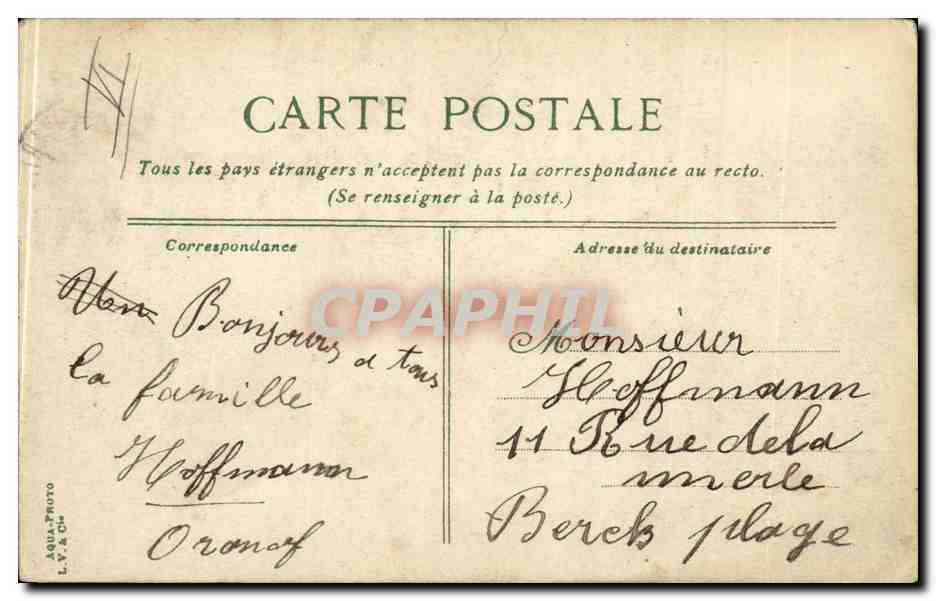 CARTE POSTALE
Tous les pays étrangers n'acceptent pas la correspondance au recto.
(Se renseigner à la poste.)
Correspondance
Bonjours a tous
la famille
Hoffmann
AQUA-PHOTO
L. V. & Cie
Adresse du destinataire
Monsieur
Hoffmann
11 Rue de la
merle
Berck plage
CPAPHIL